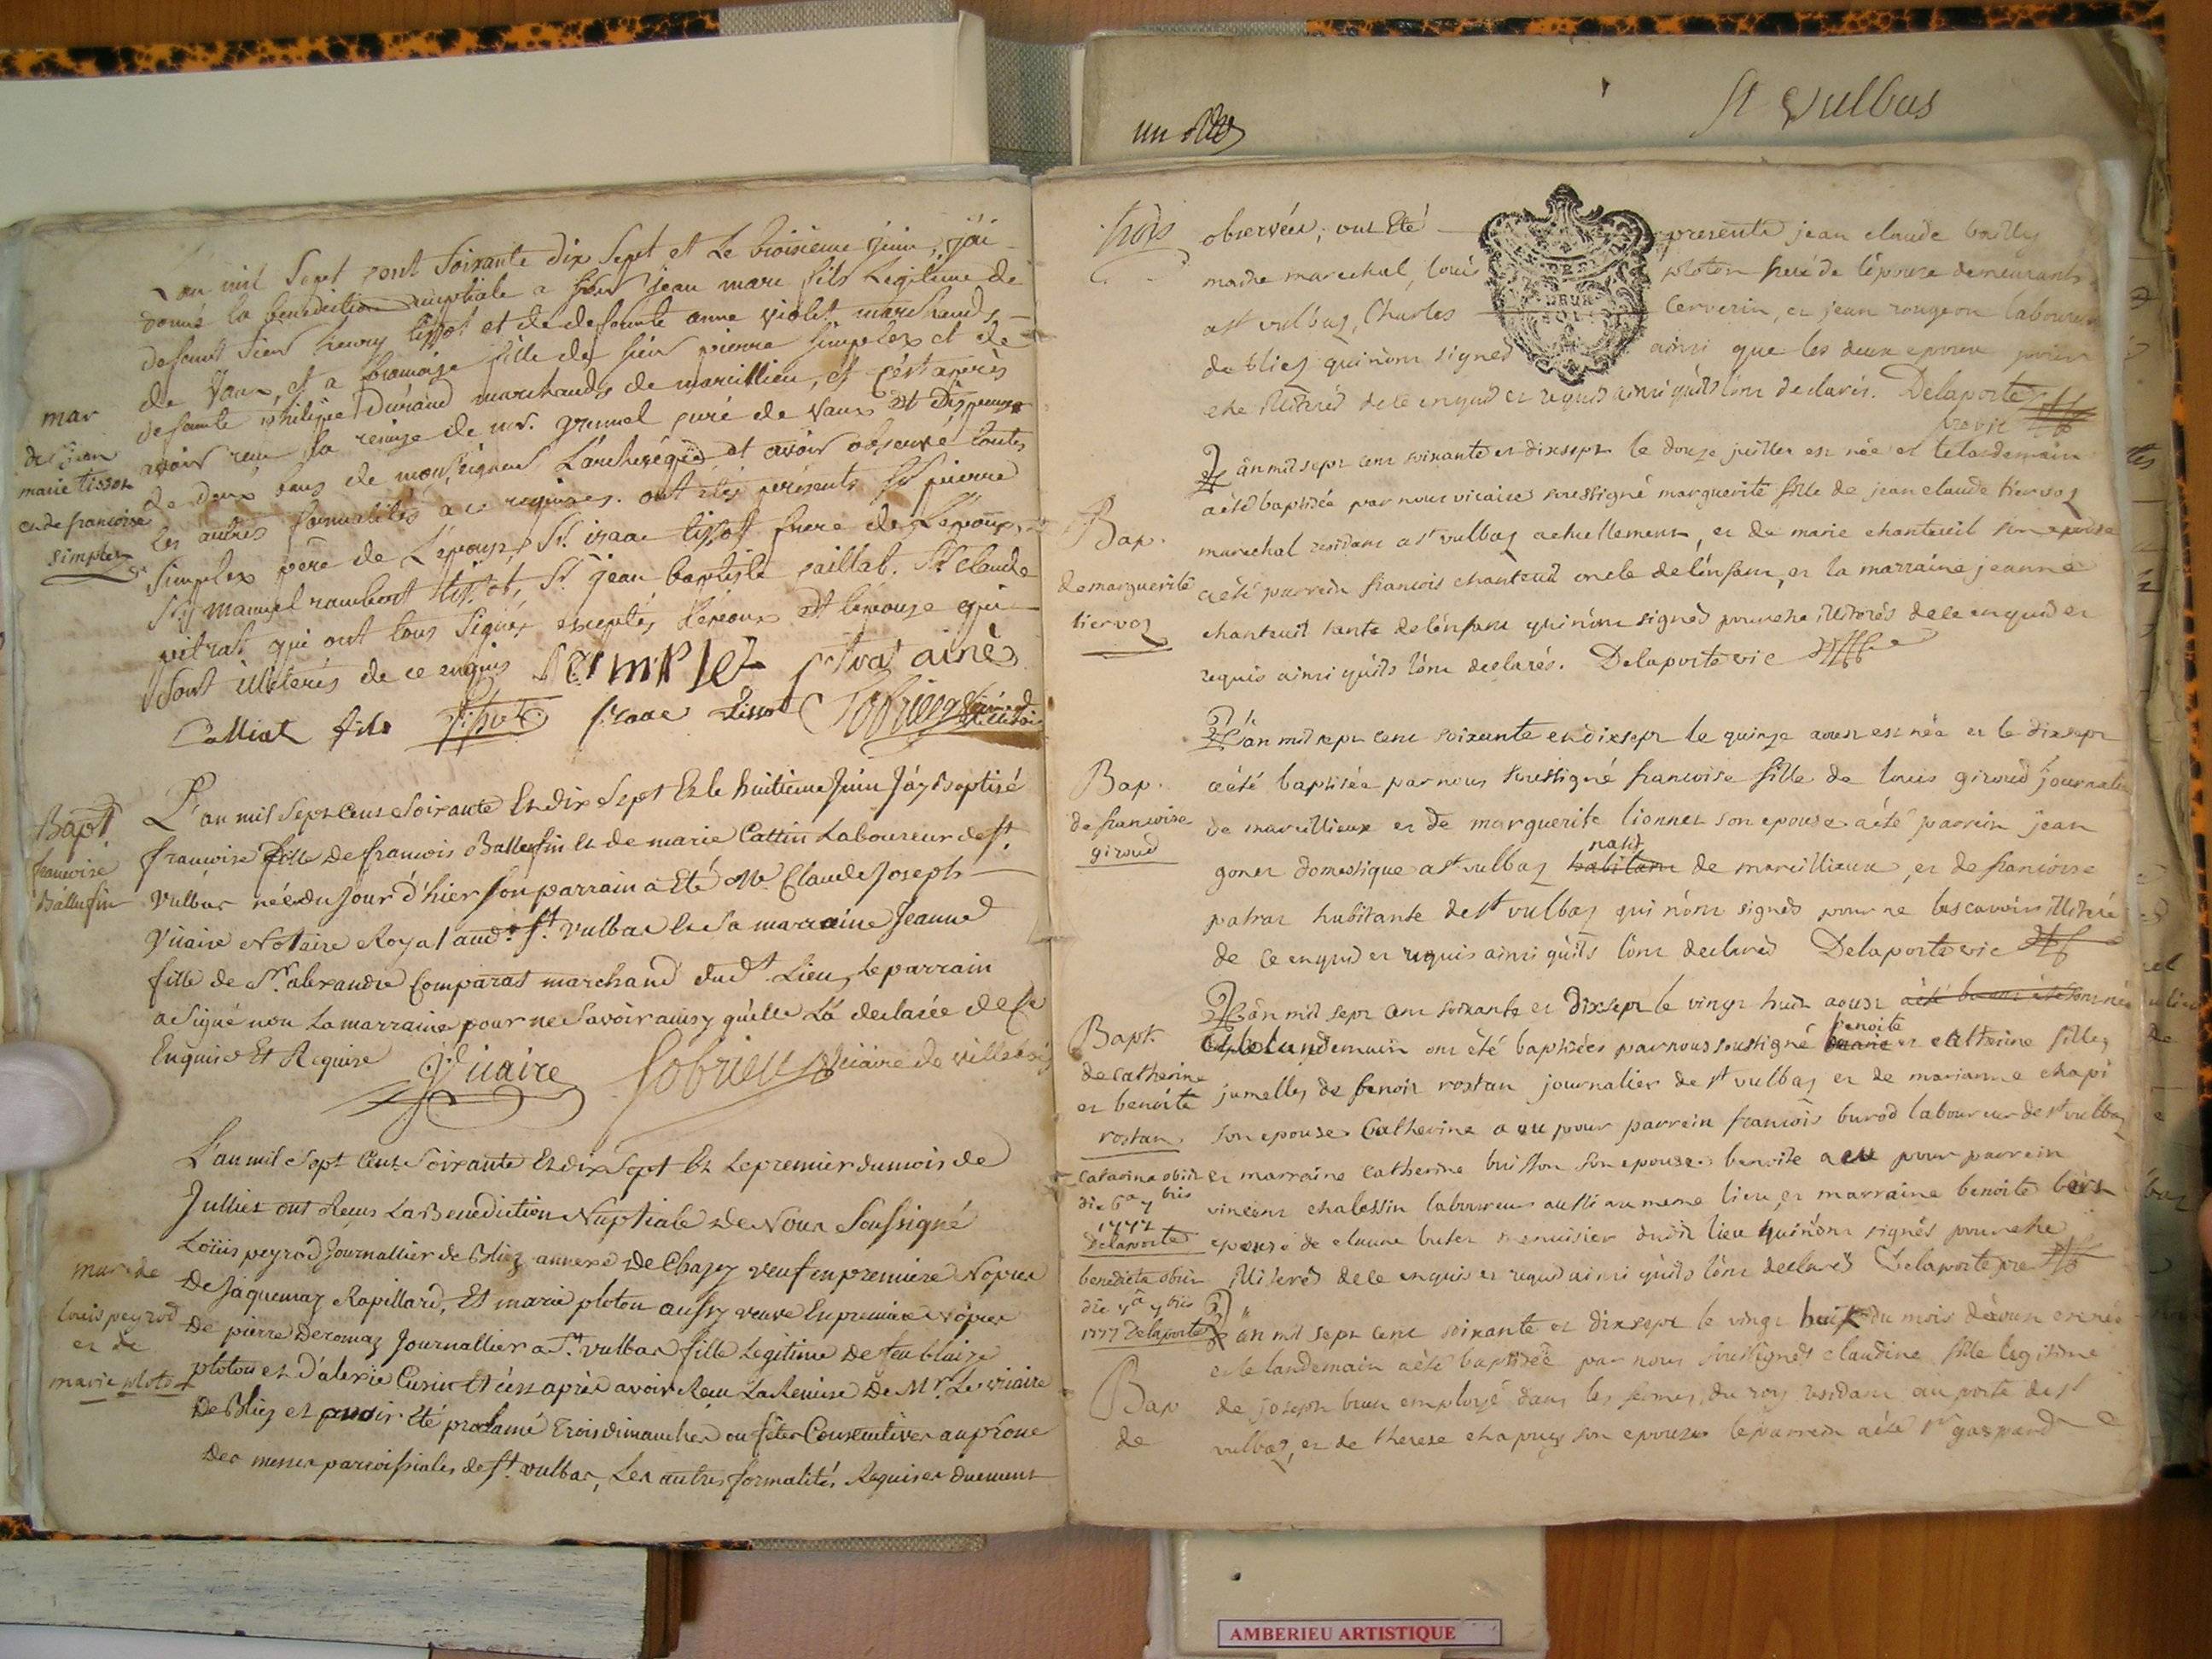 St Vulbas
L'an mil Sept cent Soixante dix Sept et Le troisieme juin, j'ai
donné la benediction nuptiale a sieur jean marc fils Legitime de
defunt Sieur henry tissot et de defunte anne violet marchands
de Vaux, et a francoise fille de sieur pierre simplex et de
defunte philippe Durand marchands de marcillieu, et c'est après
avoir reçu la remise de mr. grumel curé de Vaux et dispense
de deux bans de monseigneur L'archevêque et avoir observé toutes
les autres formalités a ce requises. ont étés présents Sr pierre
simplex père de L'epouse, Sr. isaac tissot frere de L'epoux,
Sr manuel rambert tissot, Sr jean baptiste caillat. Sr Claude
vitrat qui ont tous signés exceptés l'epoux et l'epouse qui
sont illiterés de ce enquis
mar
de jean
marie tissot
et de francoise
simplex
simplet vitrat ainé
Calliat fils tissot isaac tissot Sobrieu
L'an mil Sept Cent Soixante Et dix Sept Et le huitieme Juin J'ay Baptisé
francoise fille De francois Ballufin Et de marie Cattin Laboureur de St.
Vulbas née du Jour d'hier son parrain a Eté Me. Claude Joseph
Vuaire Notaire Royal aud. St. Vulbas Et Sa marraine Jeanne
fille de Sr. alexandre Comparat marchand dud. Lieu, Le parrain
a Signé non La marraine pour ne Savoir ainsy qu'elle L'a declarée de Ce
Enquise Et Requise Vuaire Sobrieu Vicaire de villebois
Bapt.
francoise
Ballufin
L'an mil Sept Cent Soixante Et dix Sept Et Le premier du mois de
Juillet ont Reçus La Benediction Nuptiale De Nous Soussigné
Loüis peyrod Journallier de Bliez annexe De Chazey Veuf en premiere Nopces
De Jaquemaz Rapillard, Et marie ploton aussy veuve En premiere Nopces
De pierre Deromaz Journallier a St. Vulbas fille Legitime De feu blaize
ploton et D'alexie Cusin Et c'est après avoir Reçu La Remise De Mr. Le vicaire
De Bliez et avoir Eté proclamé trois dimanches ou fêtes Consecutives au prône
Des messes paroissiales de St. vulbas, Les autres formalités Requises duement
mar de
louis peyrod
et de
marie ploton
trois
observées; ont Eté presents jean claude
maitre marechal, louis ploton frere de l'epouse demeurants
a st vulbaz, Charles Cerverin, et jean rougeon laboureur
de bliez qui n'ont signes ainsi que les deux epoux pour
etre illiterés de ce enquis et requis ainsi qu'ils l'ont declarés. Delaporte
L'an mil sept cent soixante et dixsept le douze juillet est née et le landemain
a été baptisée par nous vicaire soussigné marguerite fille de jean claude tiervoz
marechal residant a st vulbaz actuellement, et de marie chanteuil son epouse
a été parrain francois chanteuil oncle de l'enfant, et la marraine jeanne
chanteuil tante de l'enfant qui n'ont signes pour etre illiterés de ce enquis et
requis ainsi qu'ils l'ont declarés. Delaporte vic
Bap.
de marguerite
tiervoz
L'an mil sept cent soixante et dixsept le quinze aoust est née et le dixsept
a été baptisée par nous soussigné francoise fille de louis giroud journalier
de marcillieux et de marguerite lionnet son epouse a été parrain jean
gonet domestique a st vulbaz habitant natif de marcillieux, et de francoise
patrat habitante de st vulbaz qui n'ont signés pour ne les cavoir illiteré
de ce enquis et requis ainsi qu'ils l'ont declarés Delaporte vic
Bap.
de francoise
giroud
L'an mil sept cent soixante et dixsept le vingt huit aoust
et le landemain ont été baptisées par nous soussigné benoite et catherine filles
jumelles de benoit rostan journalier de st vulbaz et de marianne chapi
son epouse Catherine a eu pour parrain francois burod laboureur de st vulbaz
et marraine catherine buisson son epouse. benoite a eu pour parrain
vincent chalessin laboureur aussi au meme lieu, et marraine benoite
epouse de claude buter menuisier dudit lieu qui n'ont signés pour etre
illiterés de ce enquis et requis ainsi qu'ils l'ont declarés Delaporte
Bapt.
de catherine
et benoite
rostan
catarina obiit
die 6a 7bris
1777
Delaporte
benedicta obiit
die 7bris
1777 Delaporte
L'an mil sept cent soixante et dixsept le vingt huit du mois d'aoust est née
et le landemain a été baptisée par nous soussignés claudine fille legitime
de joseph brun employé dans les fermes du roy residant au porte de st
vulbaz, et de therese chapuis son epouse le parrain a été sr gaspard
Bap
de
AMBERIEU ARTISTIQUE